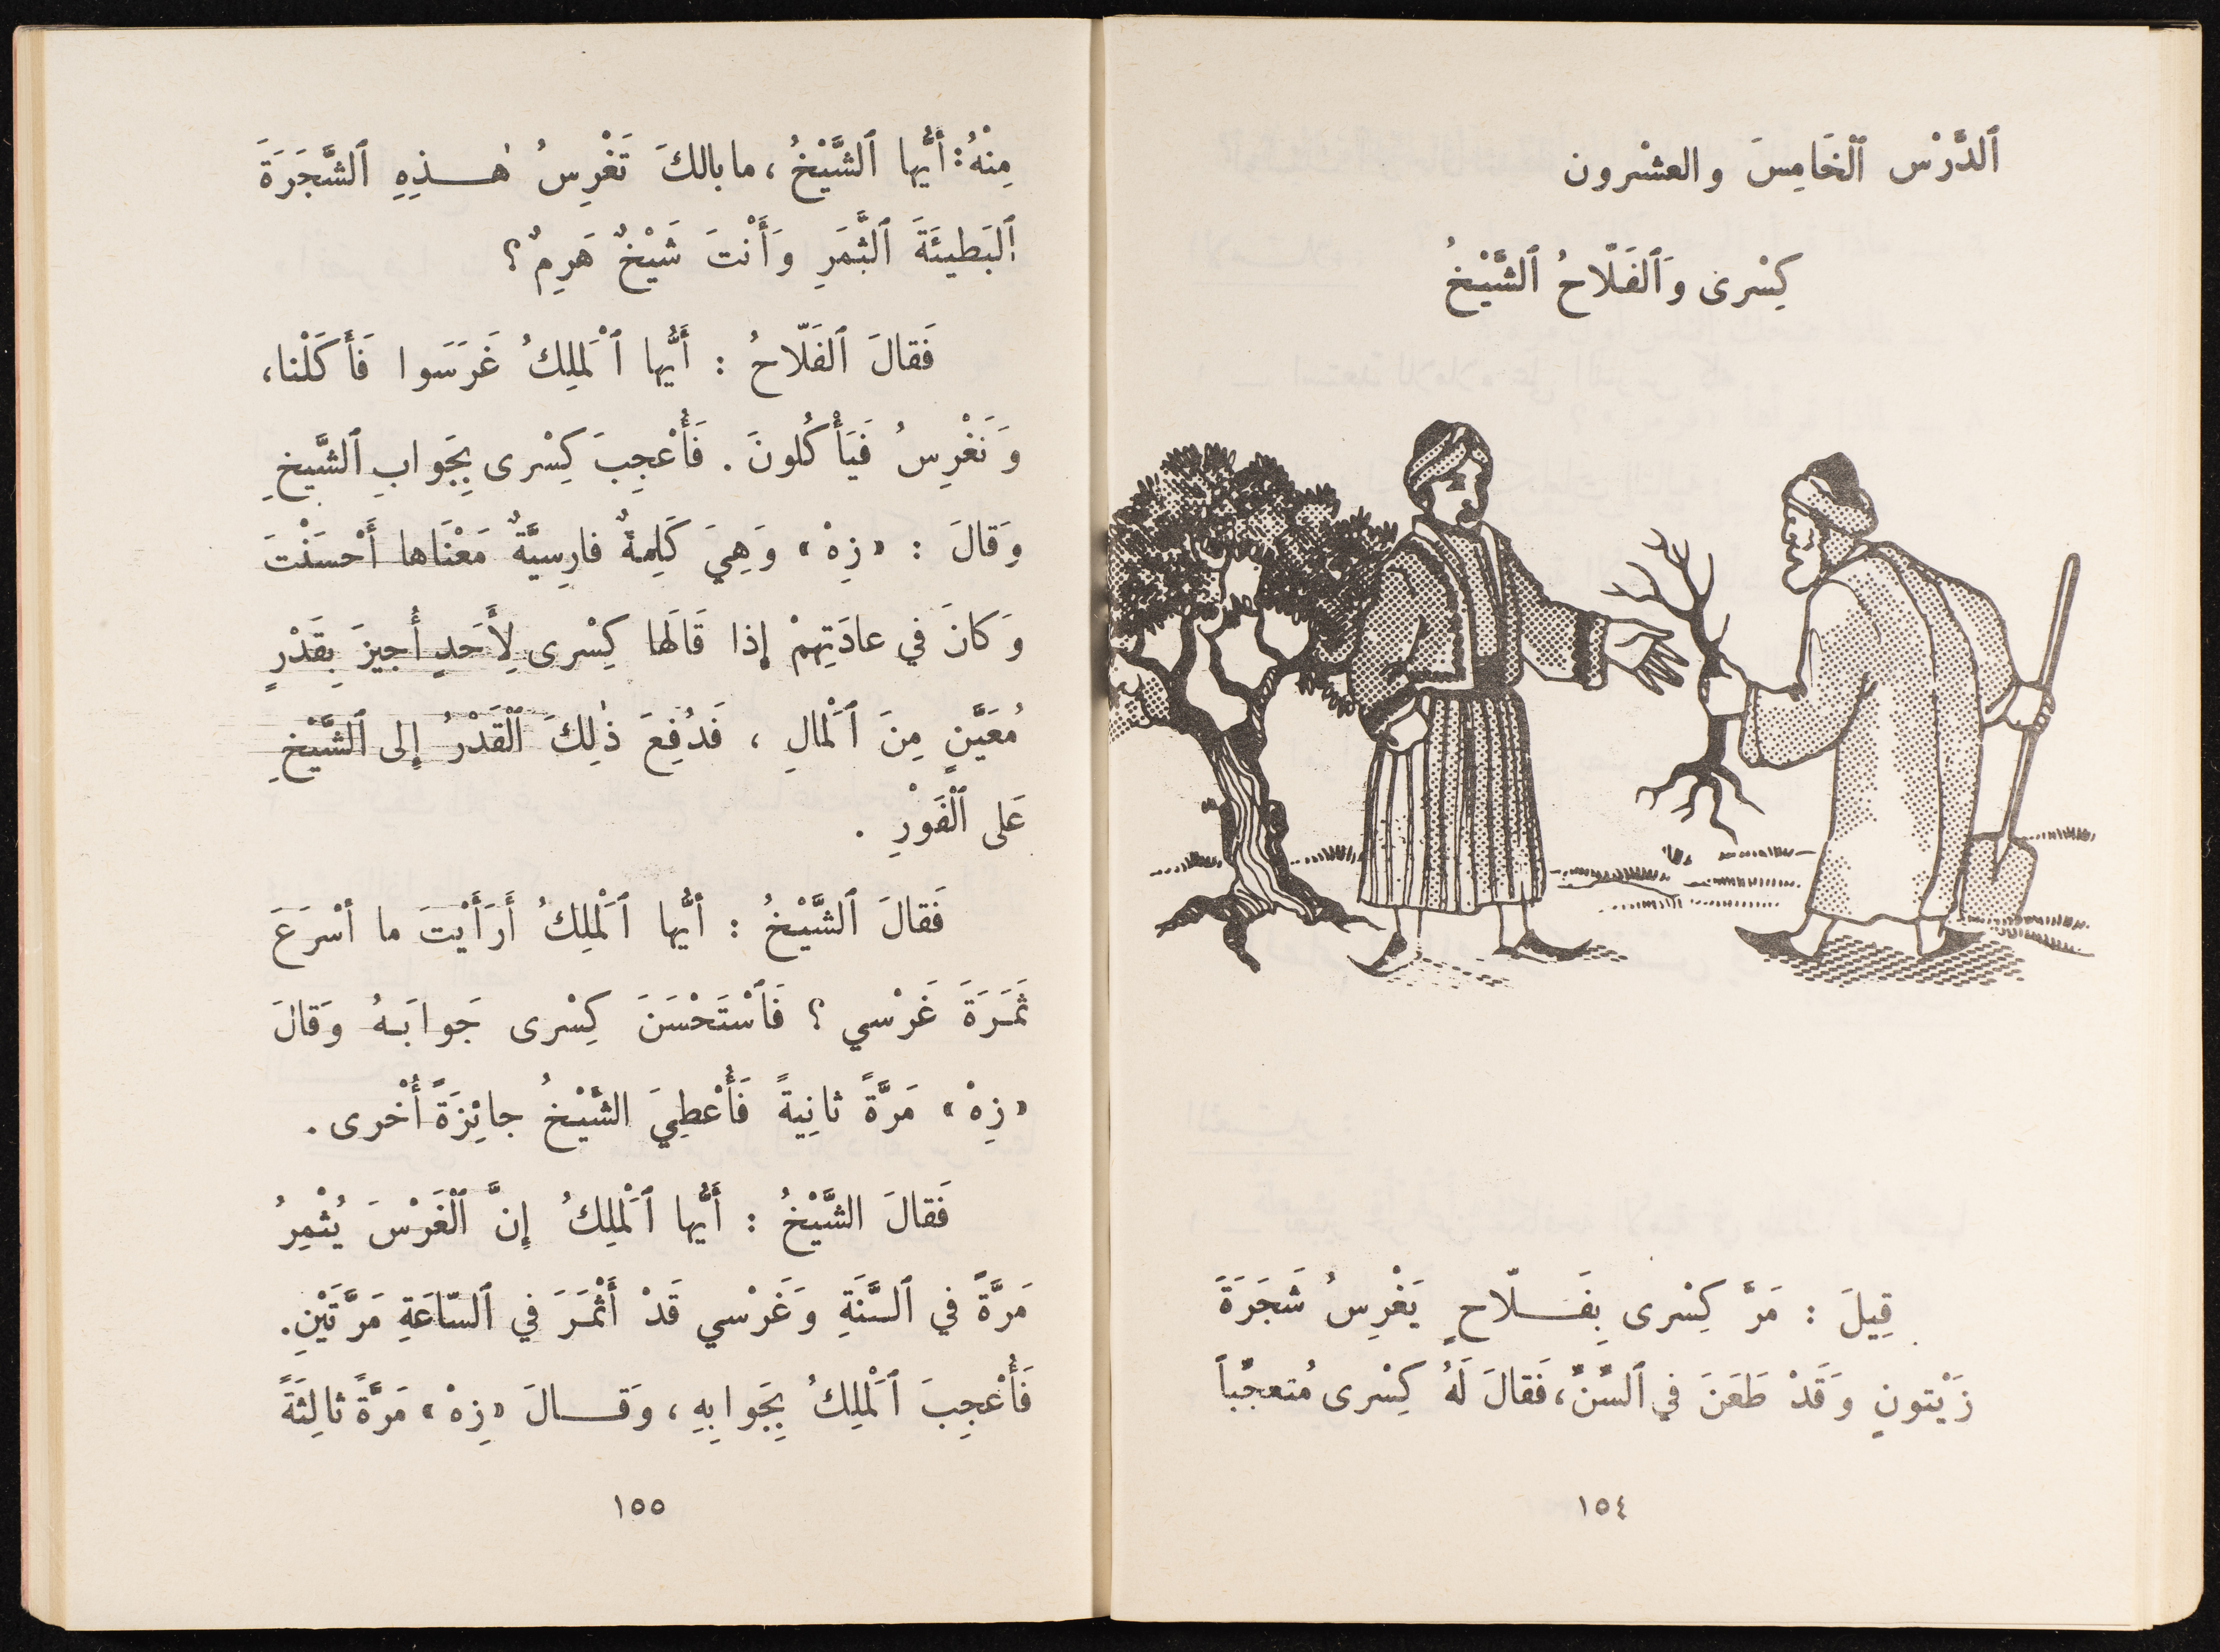 ٱلدَّرْس ٱلخَامِسَ والعشْرون
كِسْرى وَٱلفَلّاحُ ٱلشَّيْخُ
قِيلَ : مَرَّ كِسْرى بِفَـــلّاحٍ يَغْرِسُ شَجَرَةَ
زَيْتونٍ وَقَدْ طَعَنَ في ٱلسِّنِّ، فَقالَ لَهُ كِسْرى مُتعجِّباً
١٥٤
مِنْهُ: أَيُّها ٱلشَّيْخُ، ما بالكَ تَغْرِسُ هٰـــذِهِ ٱلشَّجَرَةَ
ٱلبَطيئَةَ ٱلثَّمَرِ وَأَنْتَ شَيْخٌ هَرِمٌ؟
فَقالَ ٱلفَلّاحُ : أَيُّها ٱلْمَلِكُ غَرَسَوا فَأَكَلْنا،
وَنَغْرِسُ فَيَأْكُلونَ . فَأُعْجِبَ كِسْرى بِجَوابِ ٱلشَّيخِ
وَقالَ : «زِهْ» وَهِيَ كَلِمةٌ فارِسيَّةٌ مَعْنَاها أَحْسَنْتَ
وَكانَ في عادَتِهِمْ إذا قَالَها كِسْرى لِأَحَدٍ أُجيزَ بِقَدْرٍ
مُعَيَّنٍ مِنَ ٱلْمالِ ، فَدُفِعَ ذٰلِكَ ٱلْقَدْرُ إِلى ٱلشَّيْخِ
عَلى ٱلْفَوْرِ .
فَقالَ ٱلشَّيْخُ : أيُّها ٱلْمَلِكُ أَرَأَيْتَ ما أسْرَعَ
ثَمَـرَةَ غَرْسي ؟ فَٱسْتَحْسَنَ كِسْرى جَوابَـهُ وَقالَ
«زِهْ» مَرَّةً ثانِيةً فَأُعْطِيَ الشَّيْخُ جائِزَةً أُخْرى.
فَقالَ الشَّيْخُ : أَيُّها ٱلْمَلِكُ إِنَّ ٱلْغَرْسَ يُثْمِرُ
مَرَّةً في ٱلسَّنَةِ وَغَرْسي قَدْ أَثْمَـرَ في ٱلسّاعَةِ مَرَّتَيْنِ.
فَأُعْجِبَ ٱلْمَلِكُ بِجَوابِهِ، وَقَـــالَ «زِهْ» مَرَّةً ثالِثَةً
١٥٥